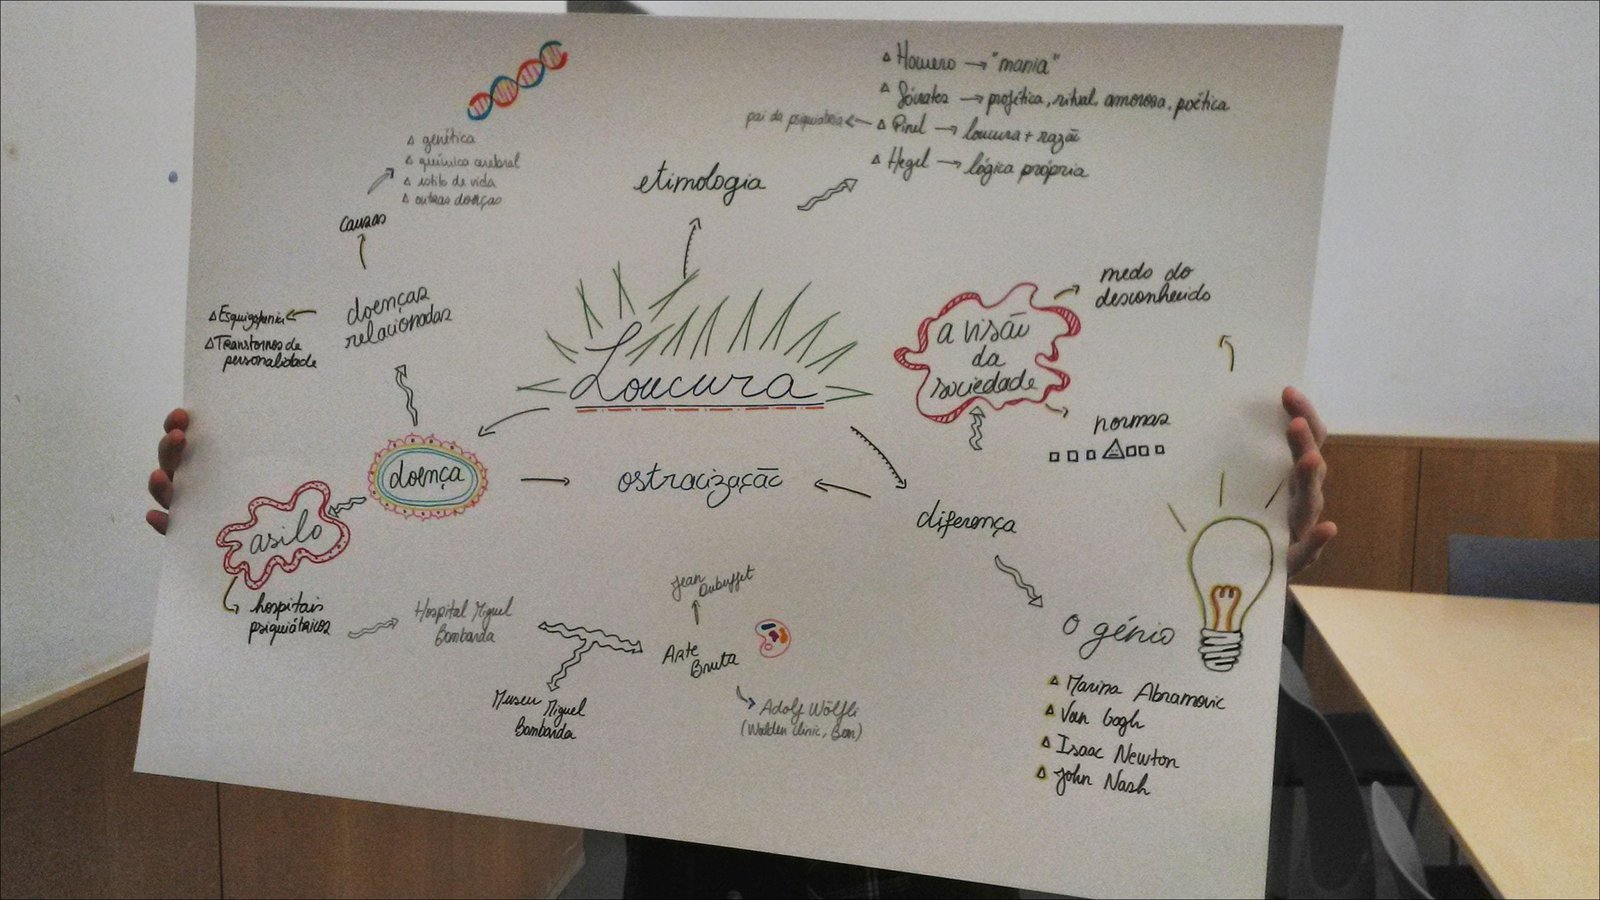 △ Homero → "mania"
△ Sócrates → profética, ritual, amorosa, poética
pai da psiquiatria ← △ Pinel → loucura + razão
△ Hegel → lógica própria
etimologia
△ genética
△ química cerebral
△ estilo de vida
△ outras doenças
causas
doenças
relacionadas
△ Esquizofrenia
△ Transtornos de
personalidade
Loucura
a visão
da
sociedade
medo do
desconhecido
normas
doença
ostracização
diferença
asilo
hospitais
psiquiátricos
Hospital Miguel
Bombarda
Museu Miguel
Bombarda
Jean
Dubuffet
Arte
Bruta
Adolf Wölfli
(Walden Clinic, Bern)
o génio
△ Marina Abramovic
△ Van Gogh
△ Isaac Newton
△ John Nash